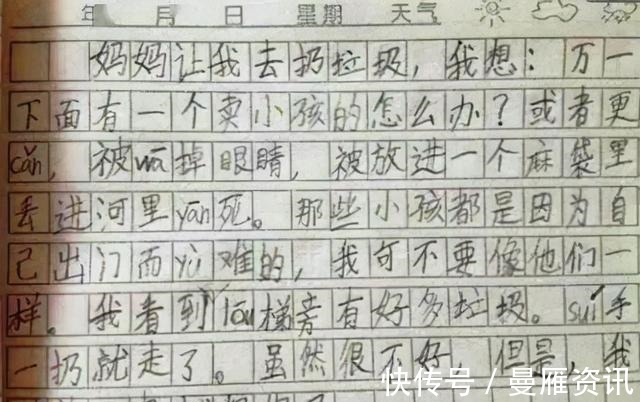 年 月 日 星期 天气
妈妈让我去扔垃圾，我想：万一
下面有一个卖小孩的怎么办？或者更
cǎn，被wā掉眼睛，被放进一个麻袋里
丢进河里yān死。那些小孩都是因为自
己出门而yù难的，我可不要像他们一
样。我看到lóu梯旁有好多垃圾。suí手
一扔就走了。虽然很不好，但是，我
快传号／曼雁资讯